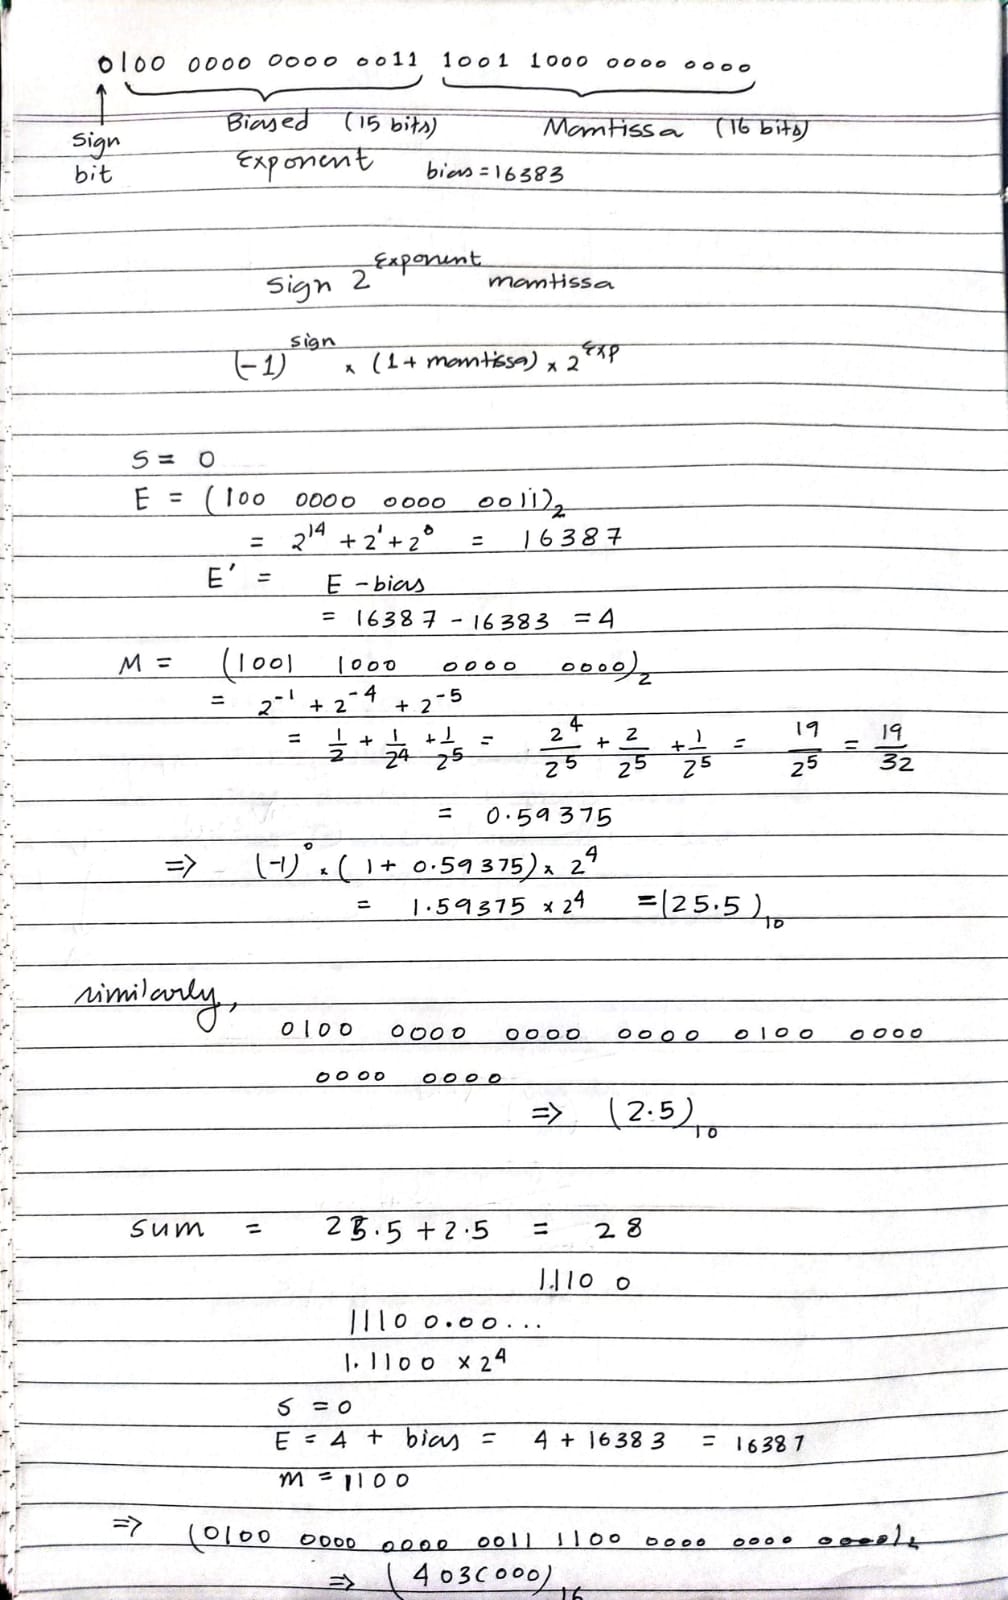 0100 0000 0000 0011 1001 1000 0000 0000
Sign bit
Biased Exponent (15 bits)
Mantissa (16 bits)
bias = 16383
Sign 2^Exponent mantissa
(-1)^sign × (1 + mantissa) × 2^Exp
S = 0
E = (100 0000 0000 0011)₂
= 2^14 + 2^1 + 2^0 = 16387
E' = E - bias
= 16387 - 16383 = 4
M = (1001 1000 0000 0000)₂
= 2^-1 + 2^-4 + 2^-5
= 1/2 + 1/2^4 + 1/2^5 = 2^4/2^5 + 2/2^5 + 1/2^5 = 19/2^5 = 19/32
= 0.59375
=> (-1)^0 × (1 + 0.59375) × 2^4
= 1.59375 × 2^4 = (25.5)₁₀
similarly,
0100 0000 0000 0000 0100 0000
0000 0000
=> (2.5)₁₀
sum = 25.5 + 2.5 = 28
1.110 0
11100.00...
1.1100 × 2^4
S = 0
E = 4 + bias = 4 + 16383 = 16387
m = 1100
=> (0100 0000 0000 0011 1100 0000 0000 0000)₂
=> (403C000)₁₆